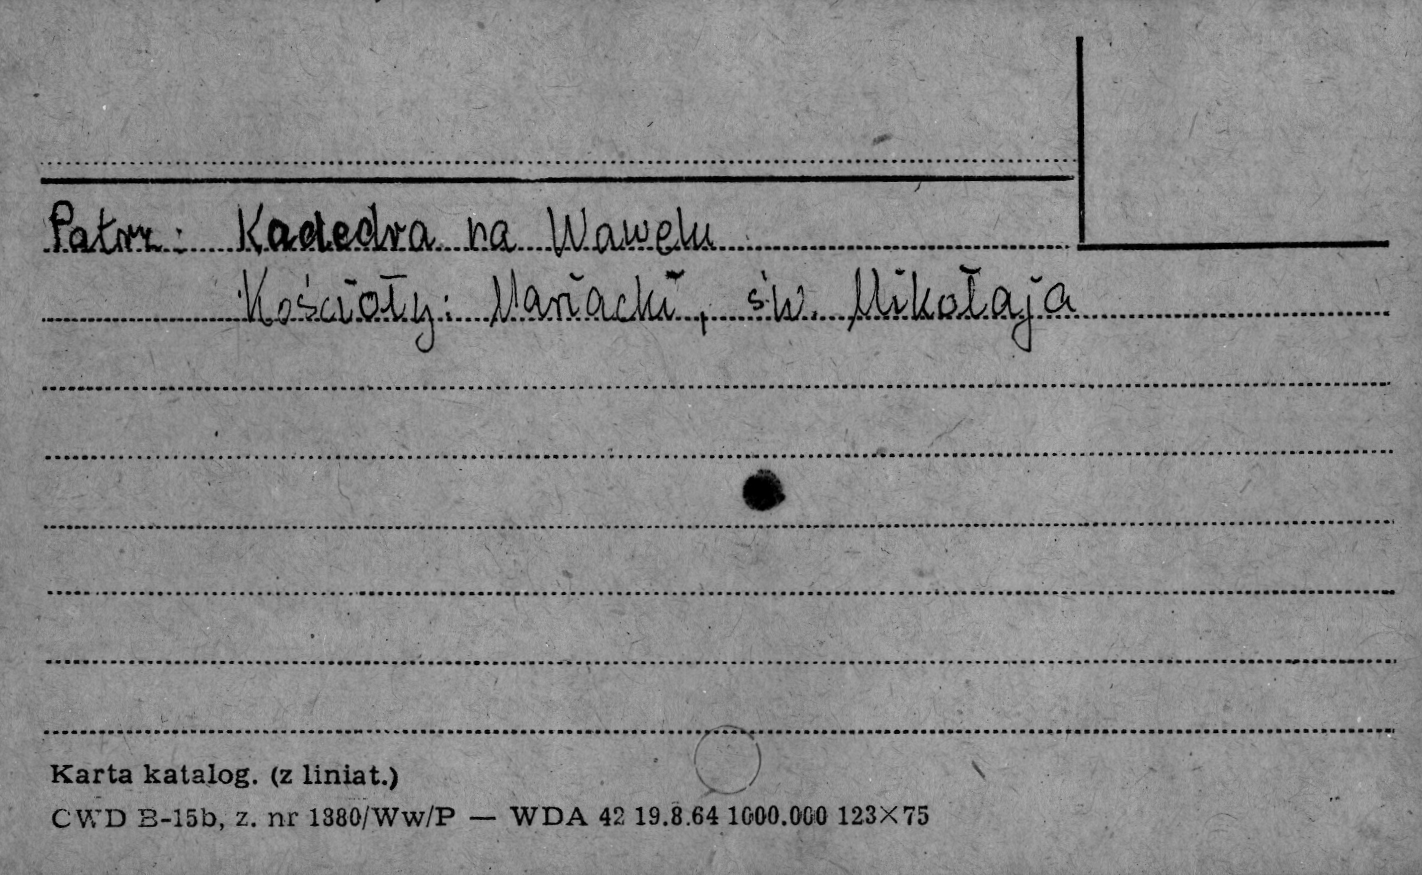 Patrz: Kadedra na Wawelu
Kościoły: Mariacki, św. Mikołaja
Karta katalog. (z liniat.)
CWD B-15b, z. nr 1380/Ww/P — WDA 42 19.8.64 1000.000 123×75